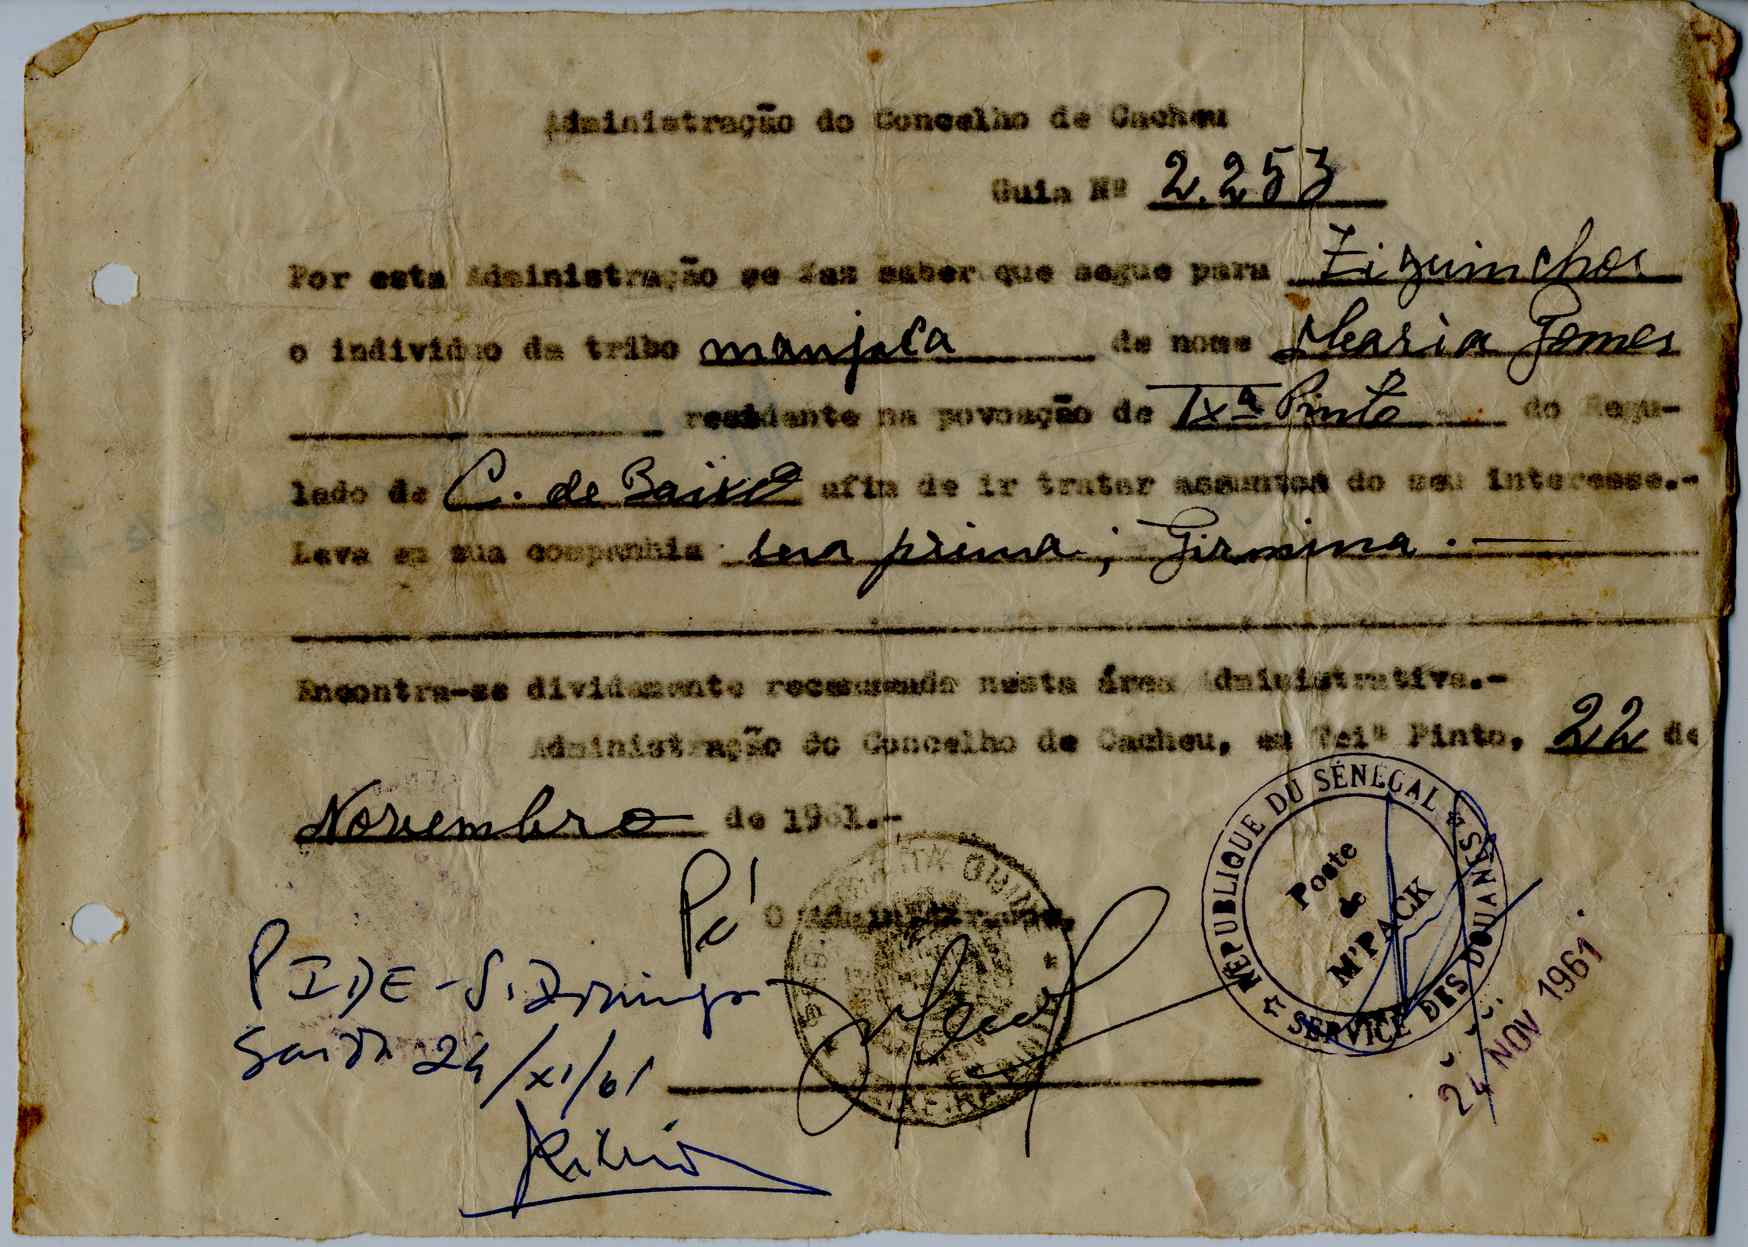 Administração do Concelho de Cacheu
Guia Nº 2.253
Por esta Administração se faz saber que segue para Ziguinchor
o individuo da tribo manjaca de nome Maria Gomes
residente na povoação de Txª Pinto do Regu-
lado de C. de Baixo afim de ir tratar assuntos do seu interesse.-
Leva em sua companhia sua prima; Firmina . —
Encontra-se dividamente recenseado nesta área Administrativa.-
Administração do Concelho de Cacheu, em Teiª Pinto, 22 de
Novembro de 1961.-
Pel' O Administrador,
PIDE - S. Domingos
Saida 24/XI/61
REPUBLIQUE DU SÉNEGAL
SERVICE DES DOUANES
Poste
de
M'PACK
24 NOV 1961